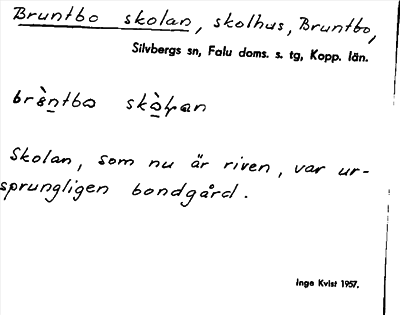 Bruntbo skolan, skolhus, Bruntbo,
Silvbergs sn, Falu doms. s. tg, Kopp. län.
Skolan, som nu är riven, var ur-
sprungligen bondgård.
Inga Kvist 1957.